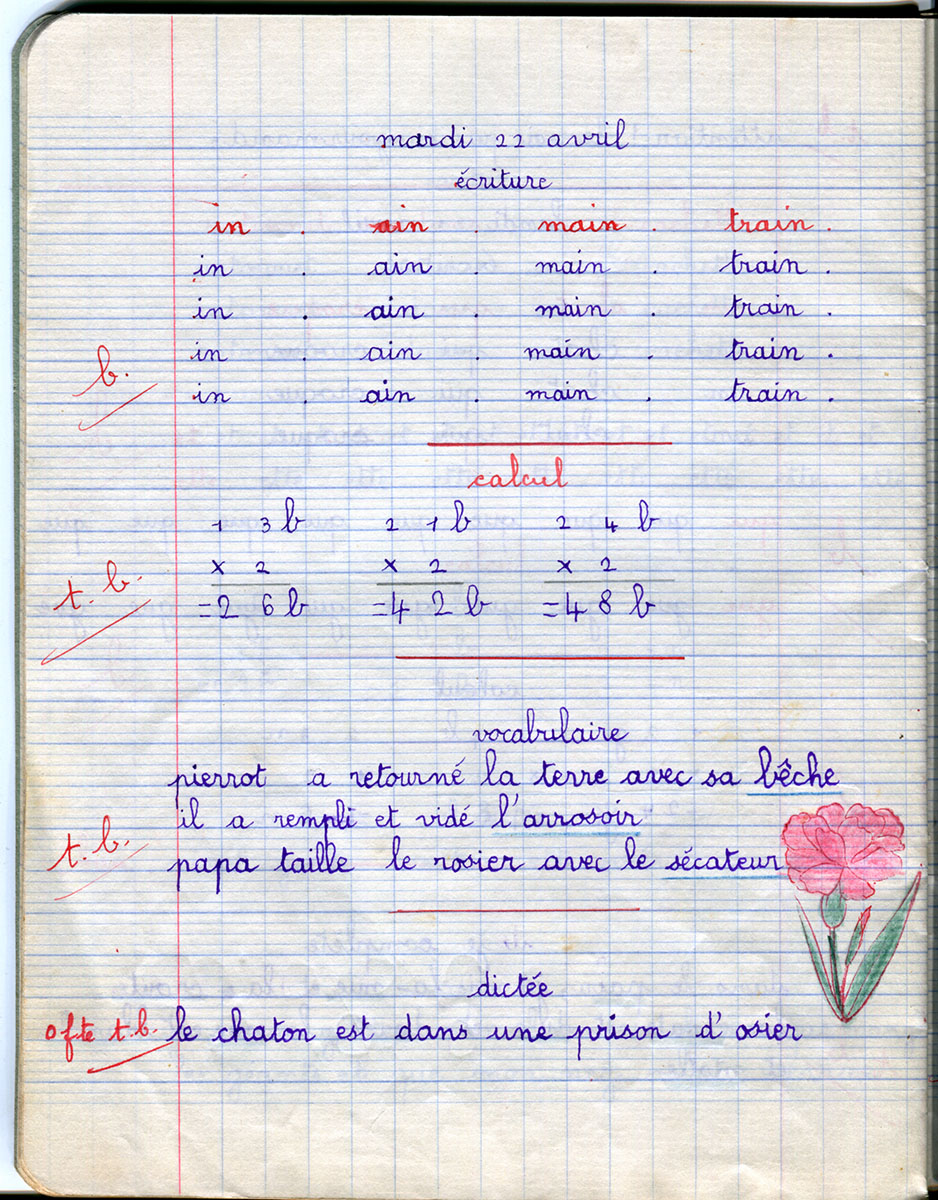 mardi 22 avril
écriture
in . ain . main . train .
in . ain . main . train .
in . ain . main . train .
in . ain . main . train .
b. in . ain . main . train .
calcul
1 3 b 2 1 b 2 4 b
x 2 x 2 x 2
t. b. = 2 6 b = 4 2 b = 4 8 b
vocabulaire
pierrot a retourné la terre avec sa bêche
il a rempli et vidé l'arrosoir
t. b. papa taille le rosier avec le sécateur
dictée
0 fte t.b. le chaton est dans une prison d'osier